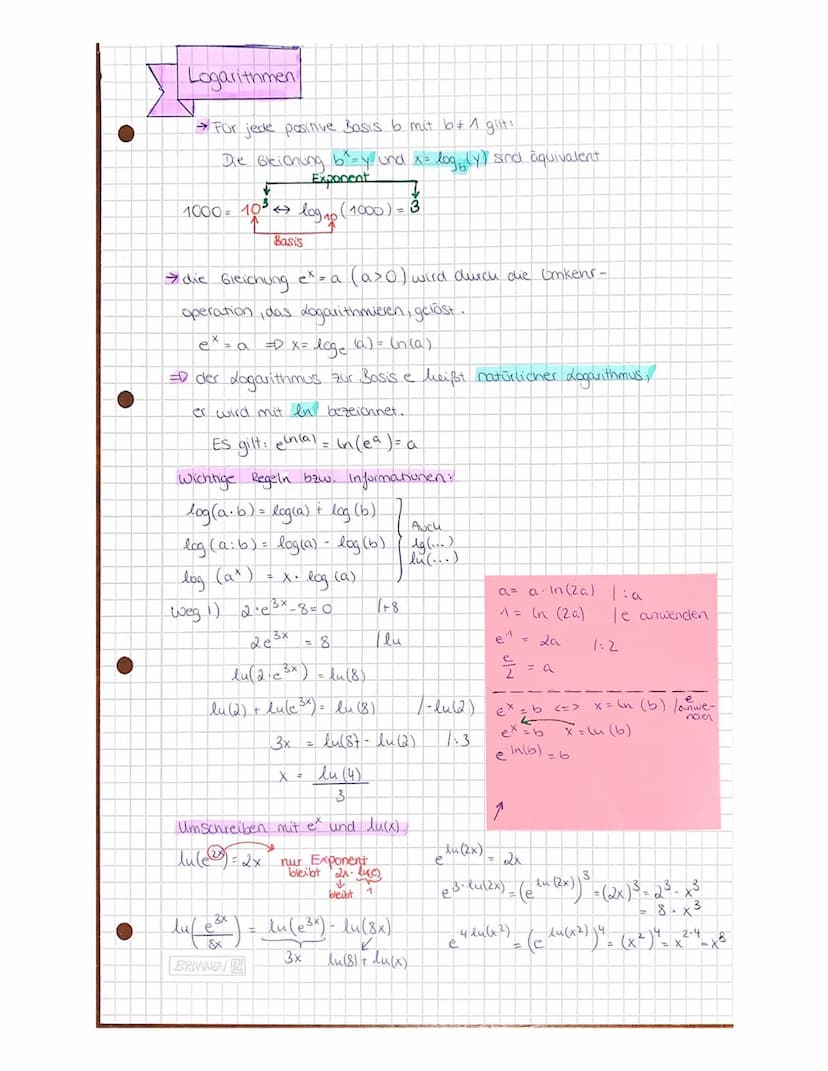 Logarithmen
→ Für jede positive Basis b mit b ≠ 1 gilt:
Die Gleichung bˣ = y und x = log_b(y) sind äquivalent
Exponent
1000 = 10³ ↔ log₁₀(1000) = 3
Basis
→ die Gleichung eˣ = a (a>0) wird durch die Umkehr-
operation, das Logarithmieren, gelöst.
eˣ = a ⇒ x = logₑ(a) = ln(a)
⇒ der Logarithmus zur Basis e heißt natürlicher Logarithmus,
er wird mit ln bezeichnet.
ES gilt: e^ln(a) = ln(e^a) = a
Wichtige Regeln bzw. Informationen:
log(a·b) = log(a) + log(b)
log(a:b) = log(a) - log(b)
log (aˣ) = x · log(a)
Auch
lg(...)
ln(...)
Weg 1) 2·e^3x - 8 = 0 |+8
2e^3x = 8 |ln
ln(2·e^3x) = ln(8)
ln(2) + ln(e^3x) = ln(8) |-ln(2)
3x = ln(8) - ln(2) |:3
x = ln(4)/3
a = a·ln(2a) |:a
1 = ln (2a) |e anwenden
e¹ = 2a |:2
e/2 = a
eˣ = b <=> x = ln(b) |e anwe-
nden
eˣ = b x = ln(b)
e^ln(b) = b
Umschreiben mit eˣ und ln(x)
ln(e^2x) = 2x
nur Exponent
bleibt 2x·ln(e)
bleibt 1
ln(e^3x/8x) = ln(e^3x) - ln(8x)
3x ln(8) + ln(x)
e^ln(2x) = 2x
e^3·ln(2x) = (e^ln(2x))³ = (2x)³ = 2³·x³
= 8·x³
e^4ln(x²) = (e^ln(x²))⁴ = (x²)⁴ = x^2·4 = x⁸
BRUNNEN